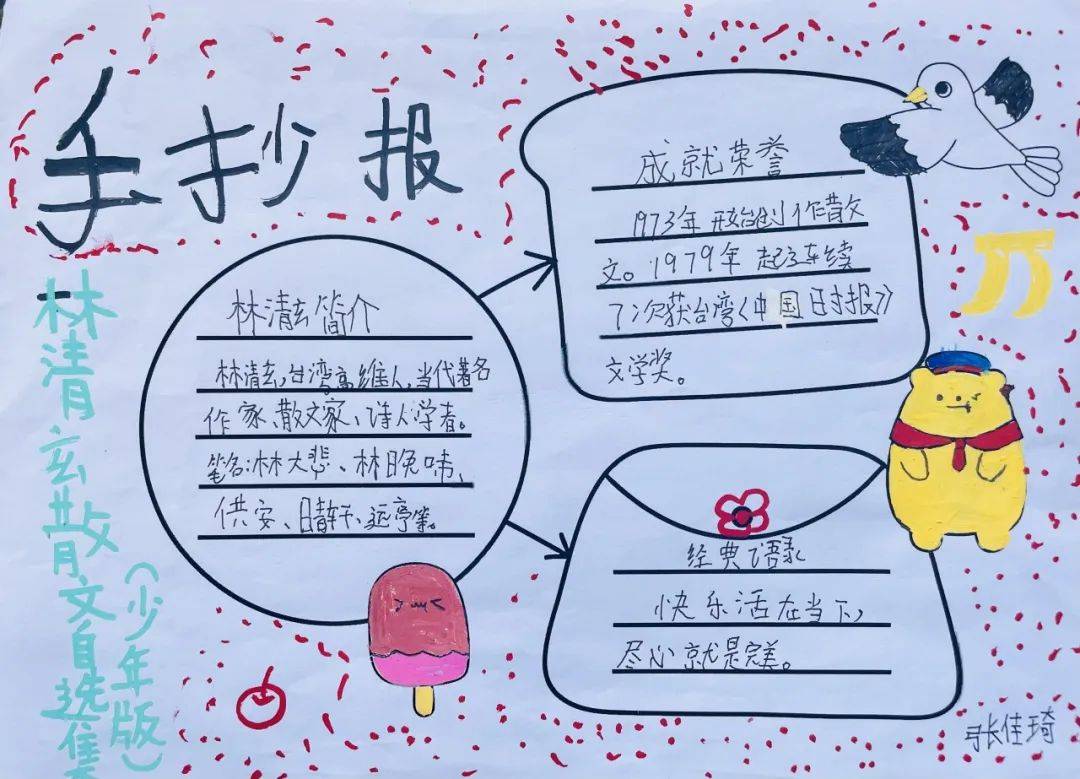 手抄报
林清玄散文自选集
(少年版)
林清玄简介
林清玄,台湾高雄人,当代著名
作家、散文家、诗人学者。
笔名:林大悲、林晚啼、
侠安、晴轩、远亭等。
成就荣誉
1973年开始创作散文
文。1979年起了连续
7次获台湾《中国时报》
文学奖。
经典语录
快乐活在当下,
尽心就是完美。
张佳琦